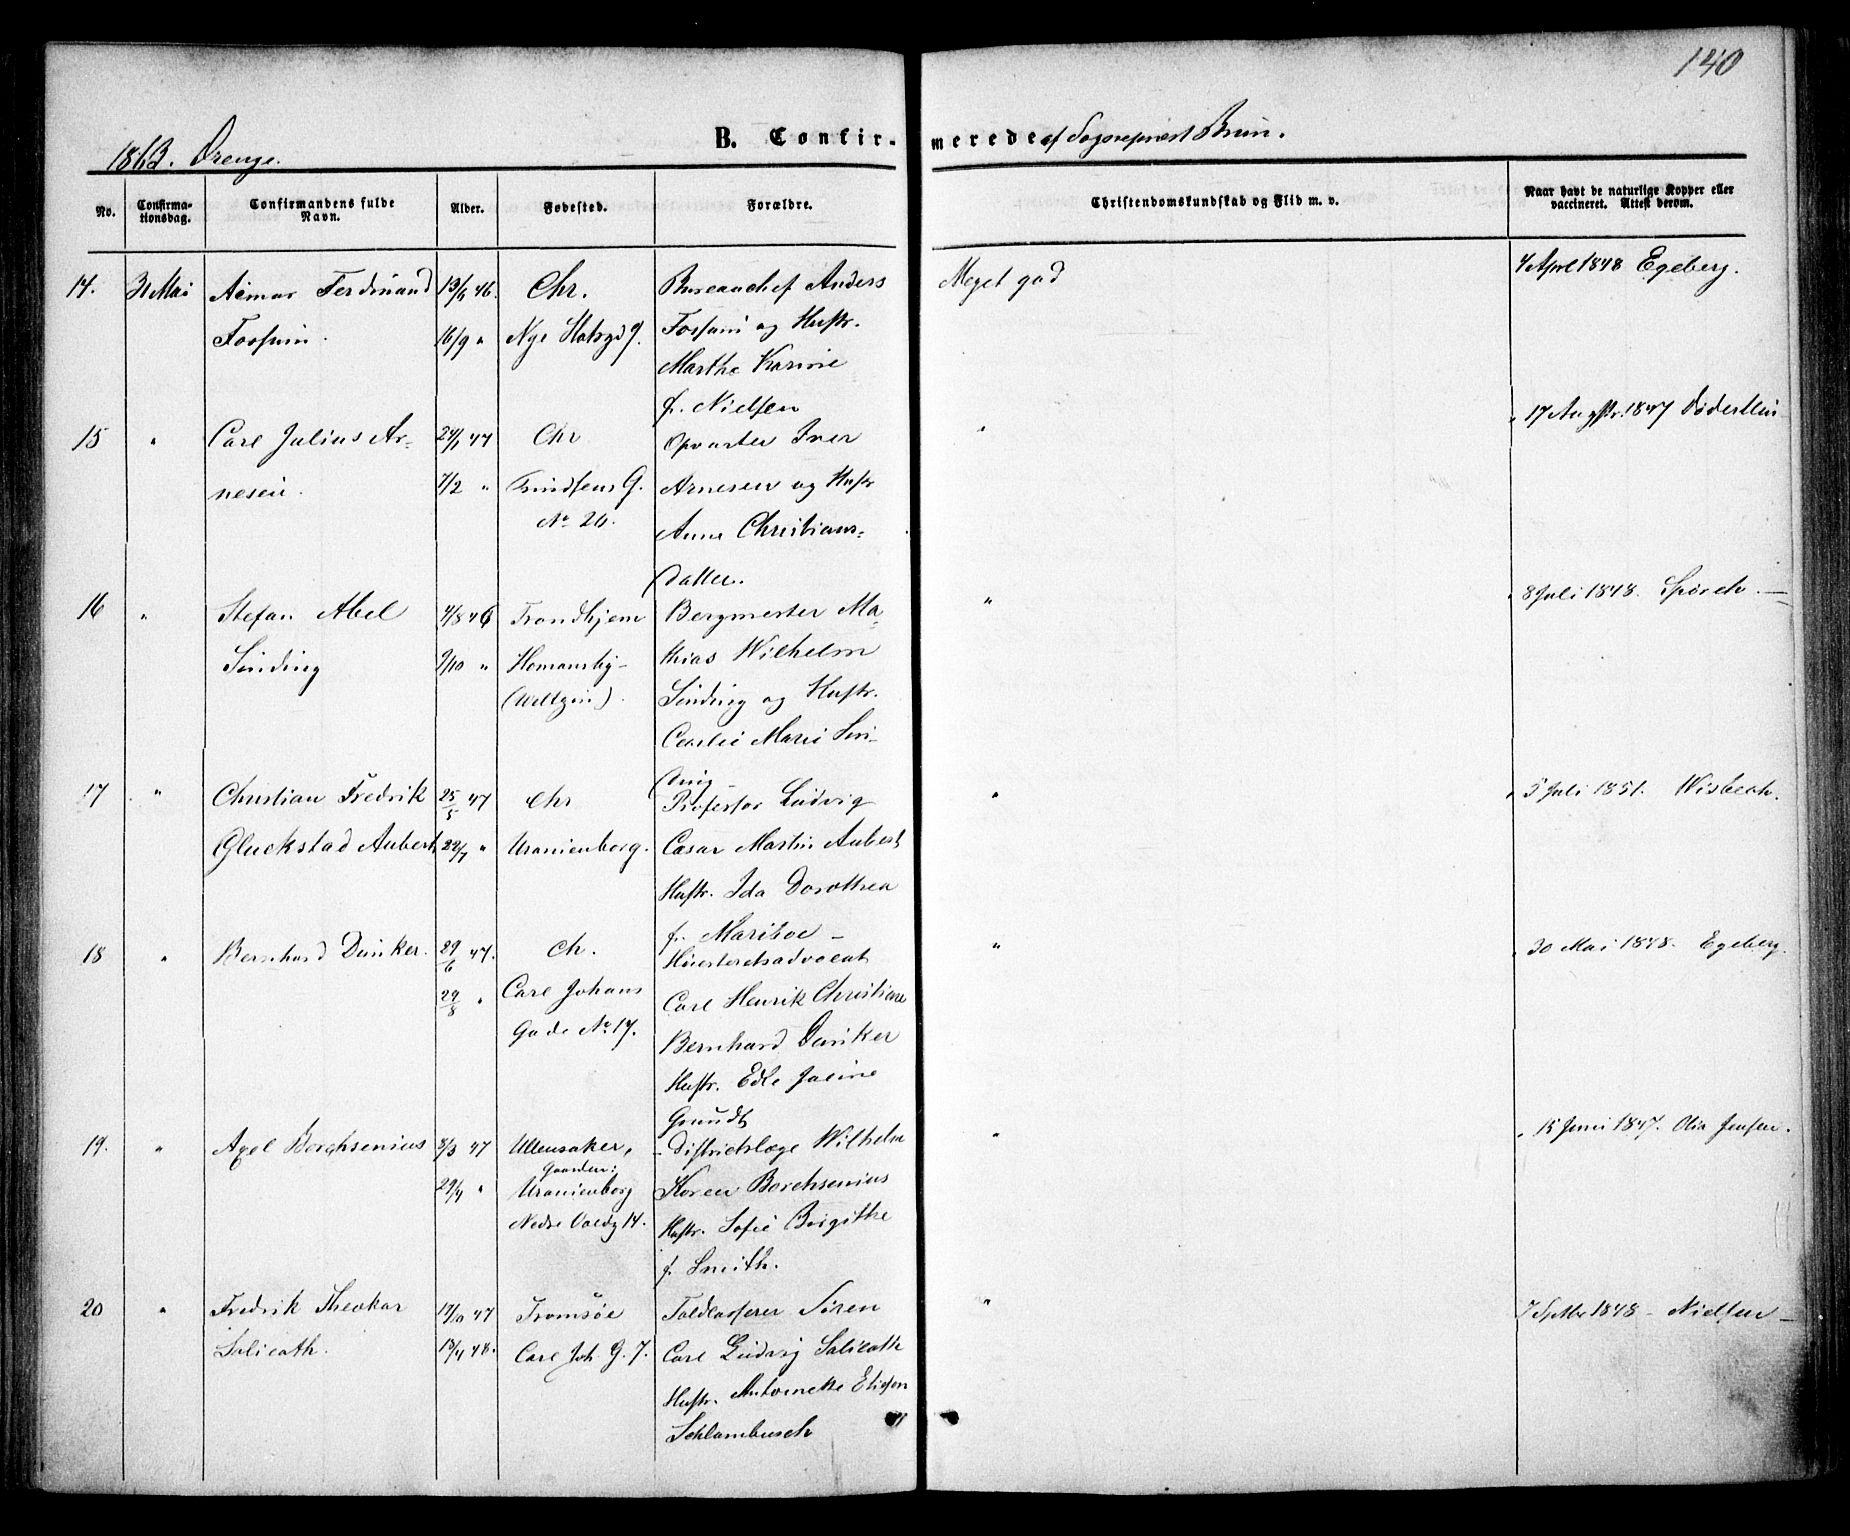 140
1863. Drenge.
B. Confirmerede af Sogneprest Brun.
No.
Confirmationsdag.
Confirmandens fulde Navn.
Alder.
Fødested.
Forældre.
Christendomskundskab og Flid m. v.
Naar havt de naturlige Kopper eller vaccineret. Attest derom.
14. 3 Mai Ferdinand 46. Chr. Bureauchef Anders Meget god 4 April 1848 Egeberg.
Fossum. 16/9 " Nye Fossum og Hustr.
Marthe Karine
f. Nielsen
15 " Carl Julius Ar- 47 Chr Opvarter Iver " 17 August 1847
nesen. 7/2 " G. Arnesen og Hustr
No 20. Anne Christians-
datter.
16 " Stefan Abel 4/8 46 Trondhjem Bergmester Ma- " 8 Juli 1848. Spørck. —
Sinding 9/10 " Homansby- thias Wilhelm
(Weltzin). Sinding og Hustr.
Cecilie Marie
17 " Christian Fredrik 25/5 47 Chr Professor Ludvig " 5 Juli 1851. Wisbech.
Gluckstad Aubert 22/7 " Uranienborg. Cæsar Martin Aubert
Hustr. Ida Dorothea
f. Mariboe —
18 " Bernhard Dunker. 29/6 47. Ch. Høiesteretsadvocat " 30 Mai 1848. Egeberg.
29/8 " Carl Johans Carl Henrik Christian
Gade No 17. Bernhard Dunker
Hustr. Edle Jasine
Grundt
19. " Axel Borchsenius 8/3 47 Ullensaker, Districtslæge Wilhelm " 15 Juni 1847. Jensen.
Gaarden:
29/4 " Uranienborg Koren Borchsenius
Nedre Voldg 14. Hustr. Sofie Birgithe
f. Smith.
20 " Fredrik Theokar 17/10 47 Tromsøe Toldcasserer Søren " 7 Septbr 1848 — Nielsen —
Salicath. 13/4 48. Carl Joh. G. 7. Carl Ludvig Salicath
Hustr. Antoinette
Schlambusch